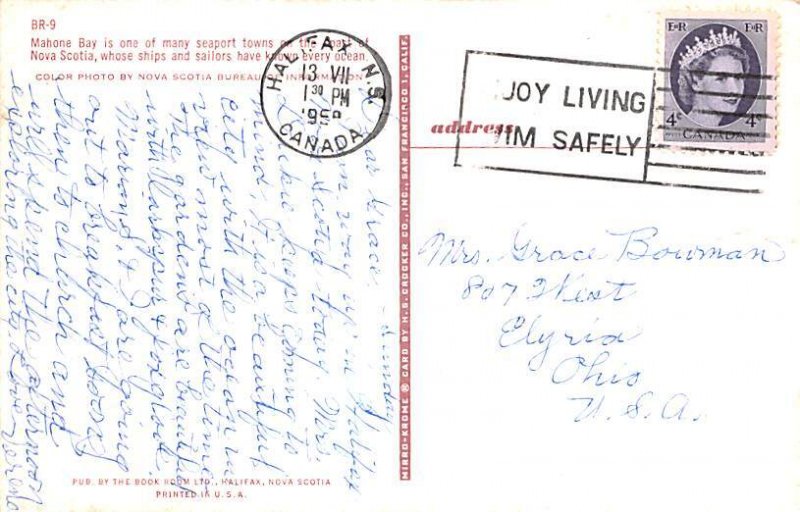 BR-9
Mahone Bay is one of many seaport towns on the coast of
Nova Scotia, whose ships and sailors have known every ocean.
COLOR PHOTO BY NOVA SCOTIA BUREAU OF INFORMATION
HALIFAX N.S.
13 VII
1 30 PM
195
CANADA
JOY LIVING
IM SAFELY
E II R E II R
4c 4c
CANADA
address
Sunday
Dear Grace -
I'm way up in Halifax
Nova Scotia today. Mrs.
keeps coming to
mind. It is a beautiful
city with the ocean in
view most of the time
The gardens are beautiful
with larkspur & foxglove.
Marion & I are going
out to breakfast
then to church and
we'll spend the afternoon
exploring the city. Love Verena
Mrs. Grace Bowman
807 West
Elyria
Ohio
U.S.A.
MIRRO-KROME ® CARD BY H. S. CROCKER CO., INC., SAN FRANCISCO 1, CALIF.
PUB. BY THE BOOK ROOM LTD., HALIFAX, NOVA SCOTIA
PRINTED IN U.S.A.